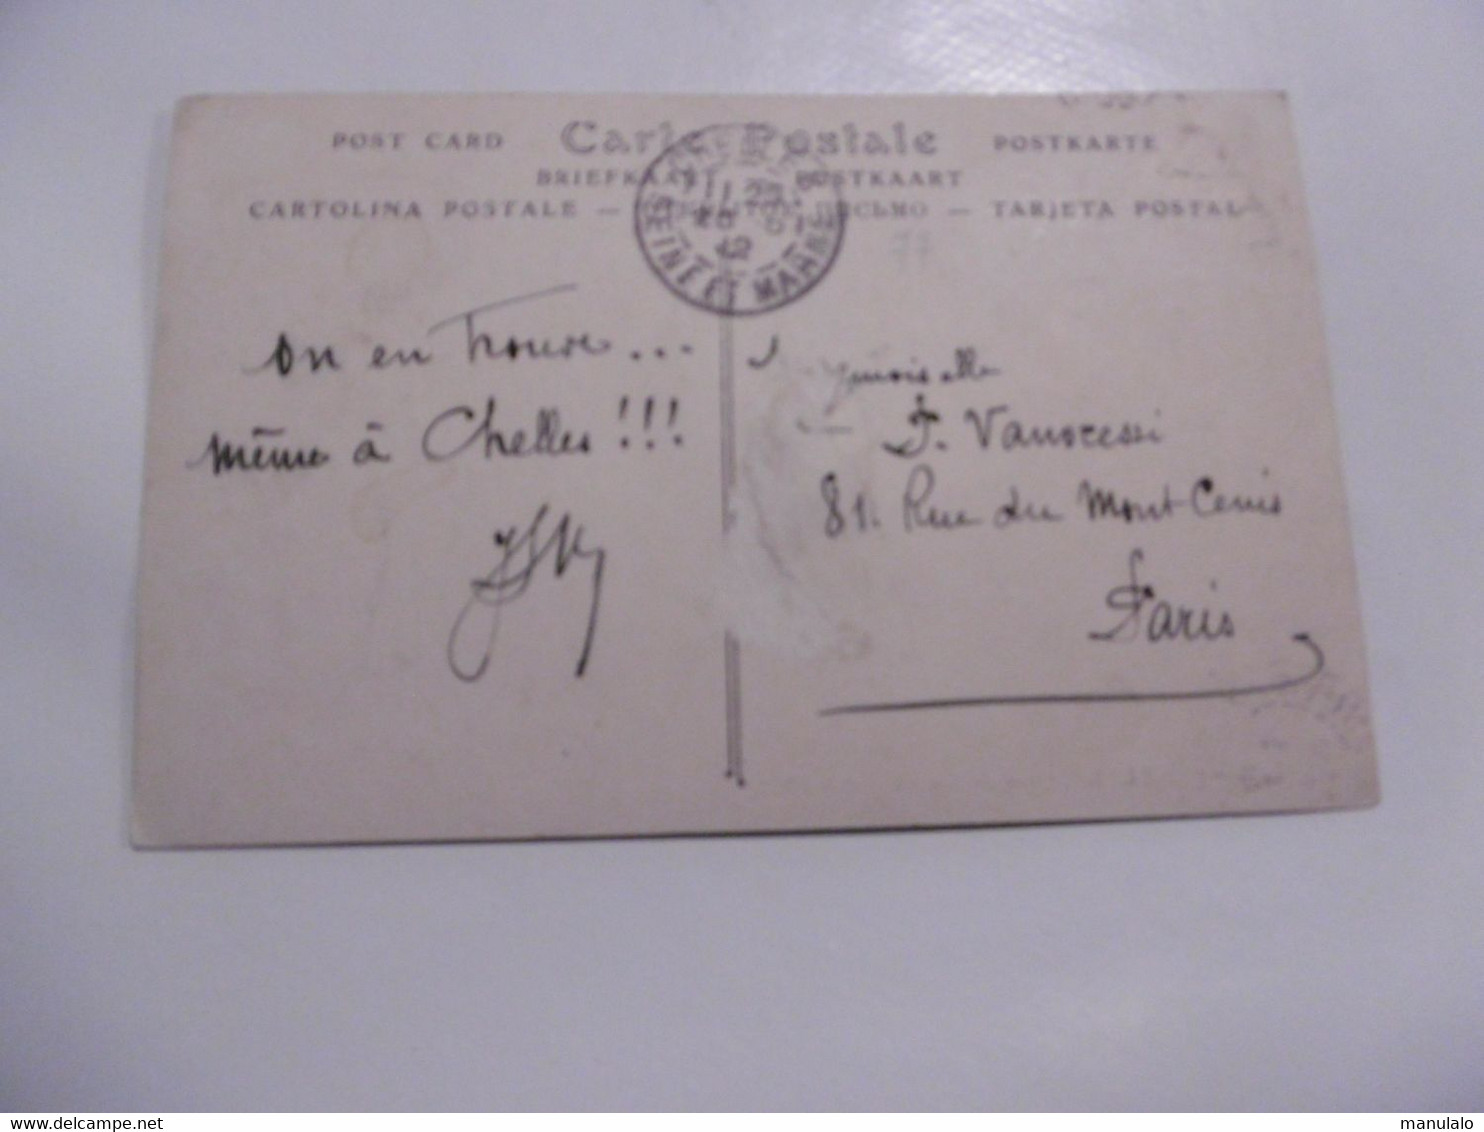 POST CARD Carte Postale POSTKARTE
BRIEFKAART POSTKAART
CARTOLINA POSTALE — ПИСЬМО — TARJETA POSTAL
SEINE ET MARNE
77
on en trouve...
même à Chelles!!!
F. Vanoressi
81. Rue du Mont Cenis
Paris
delcampe.net
manulalo